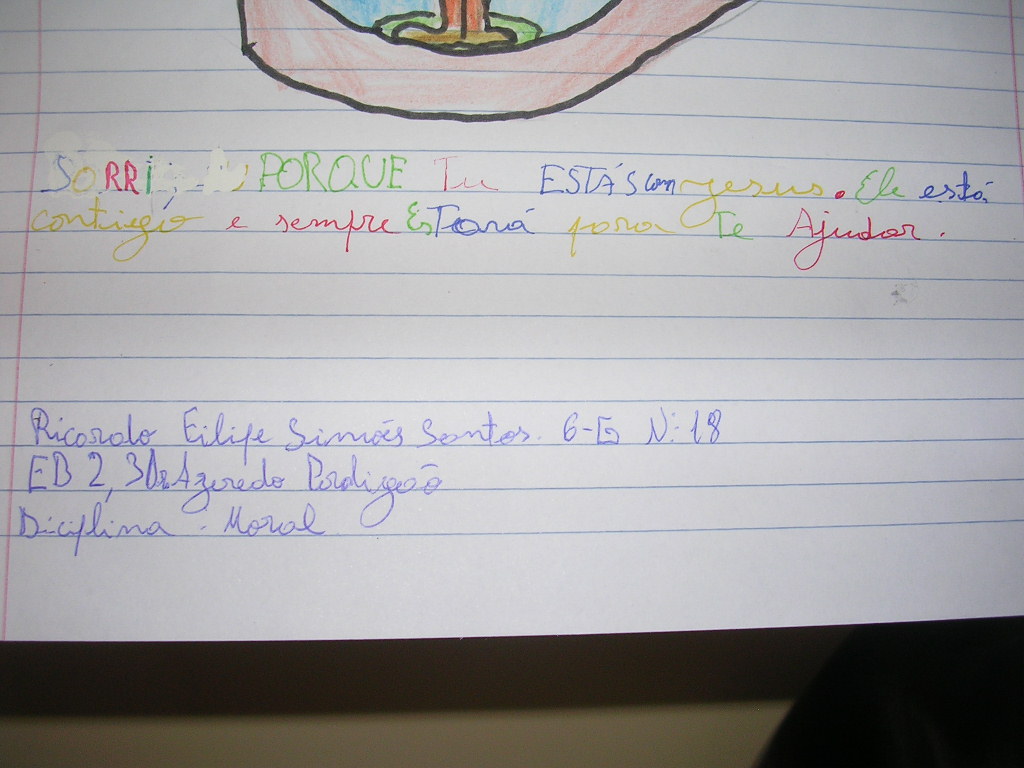 SORRI, PORQUE Tu ESTÁS com jesus. Ele está
contiego e sempre EsTará para Te Ajudar.
Ricardo Filipe Simões Santos. 6-E Nº 18
EB 2,3 Dr. Azeredo Perdigão
Diciplina - Moral